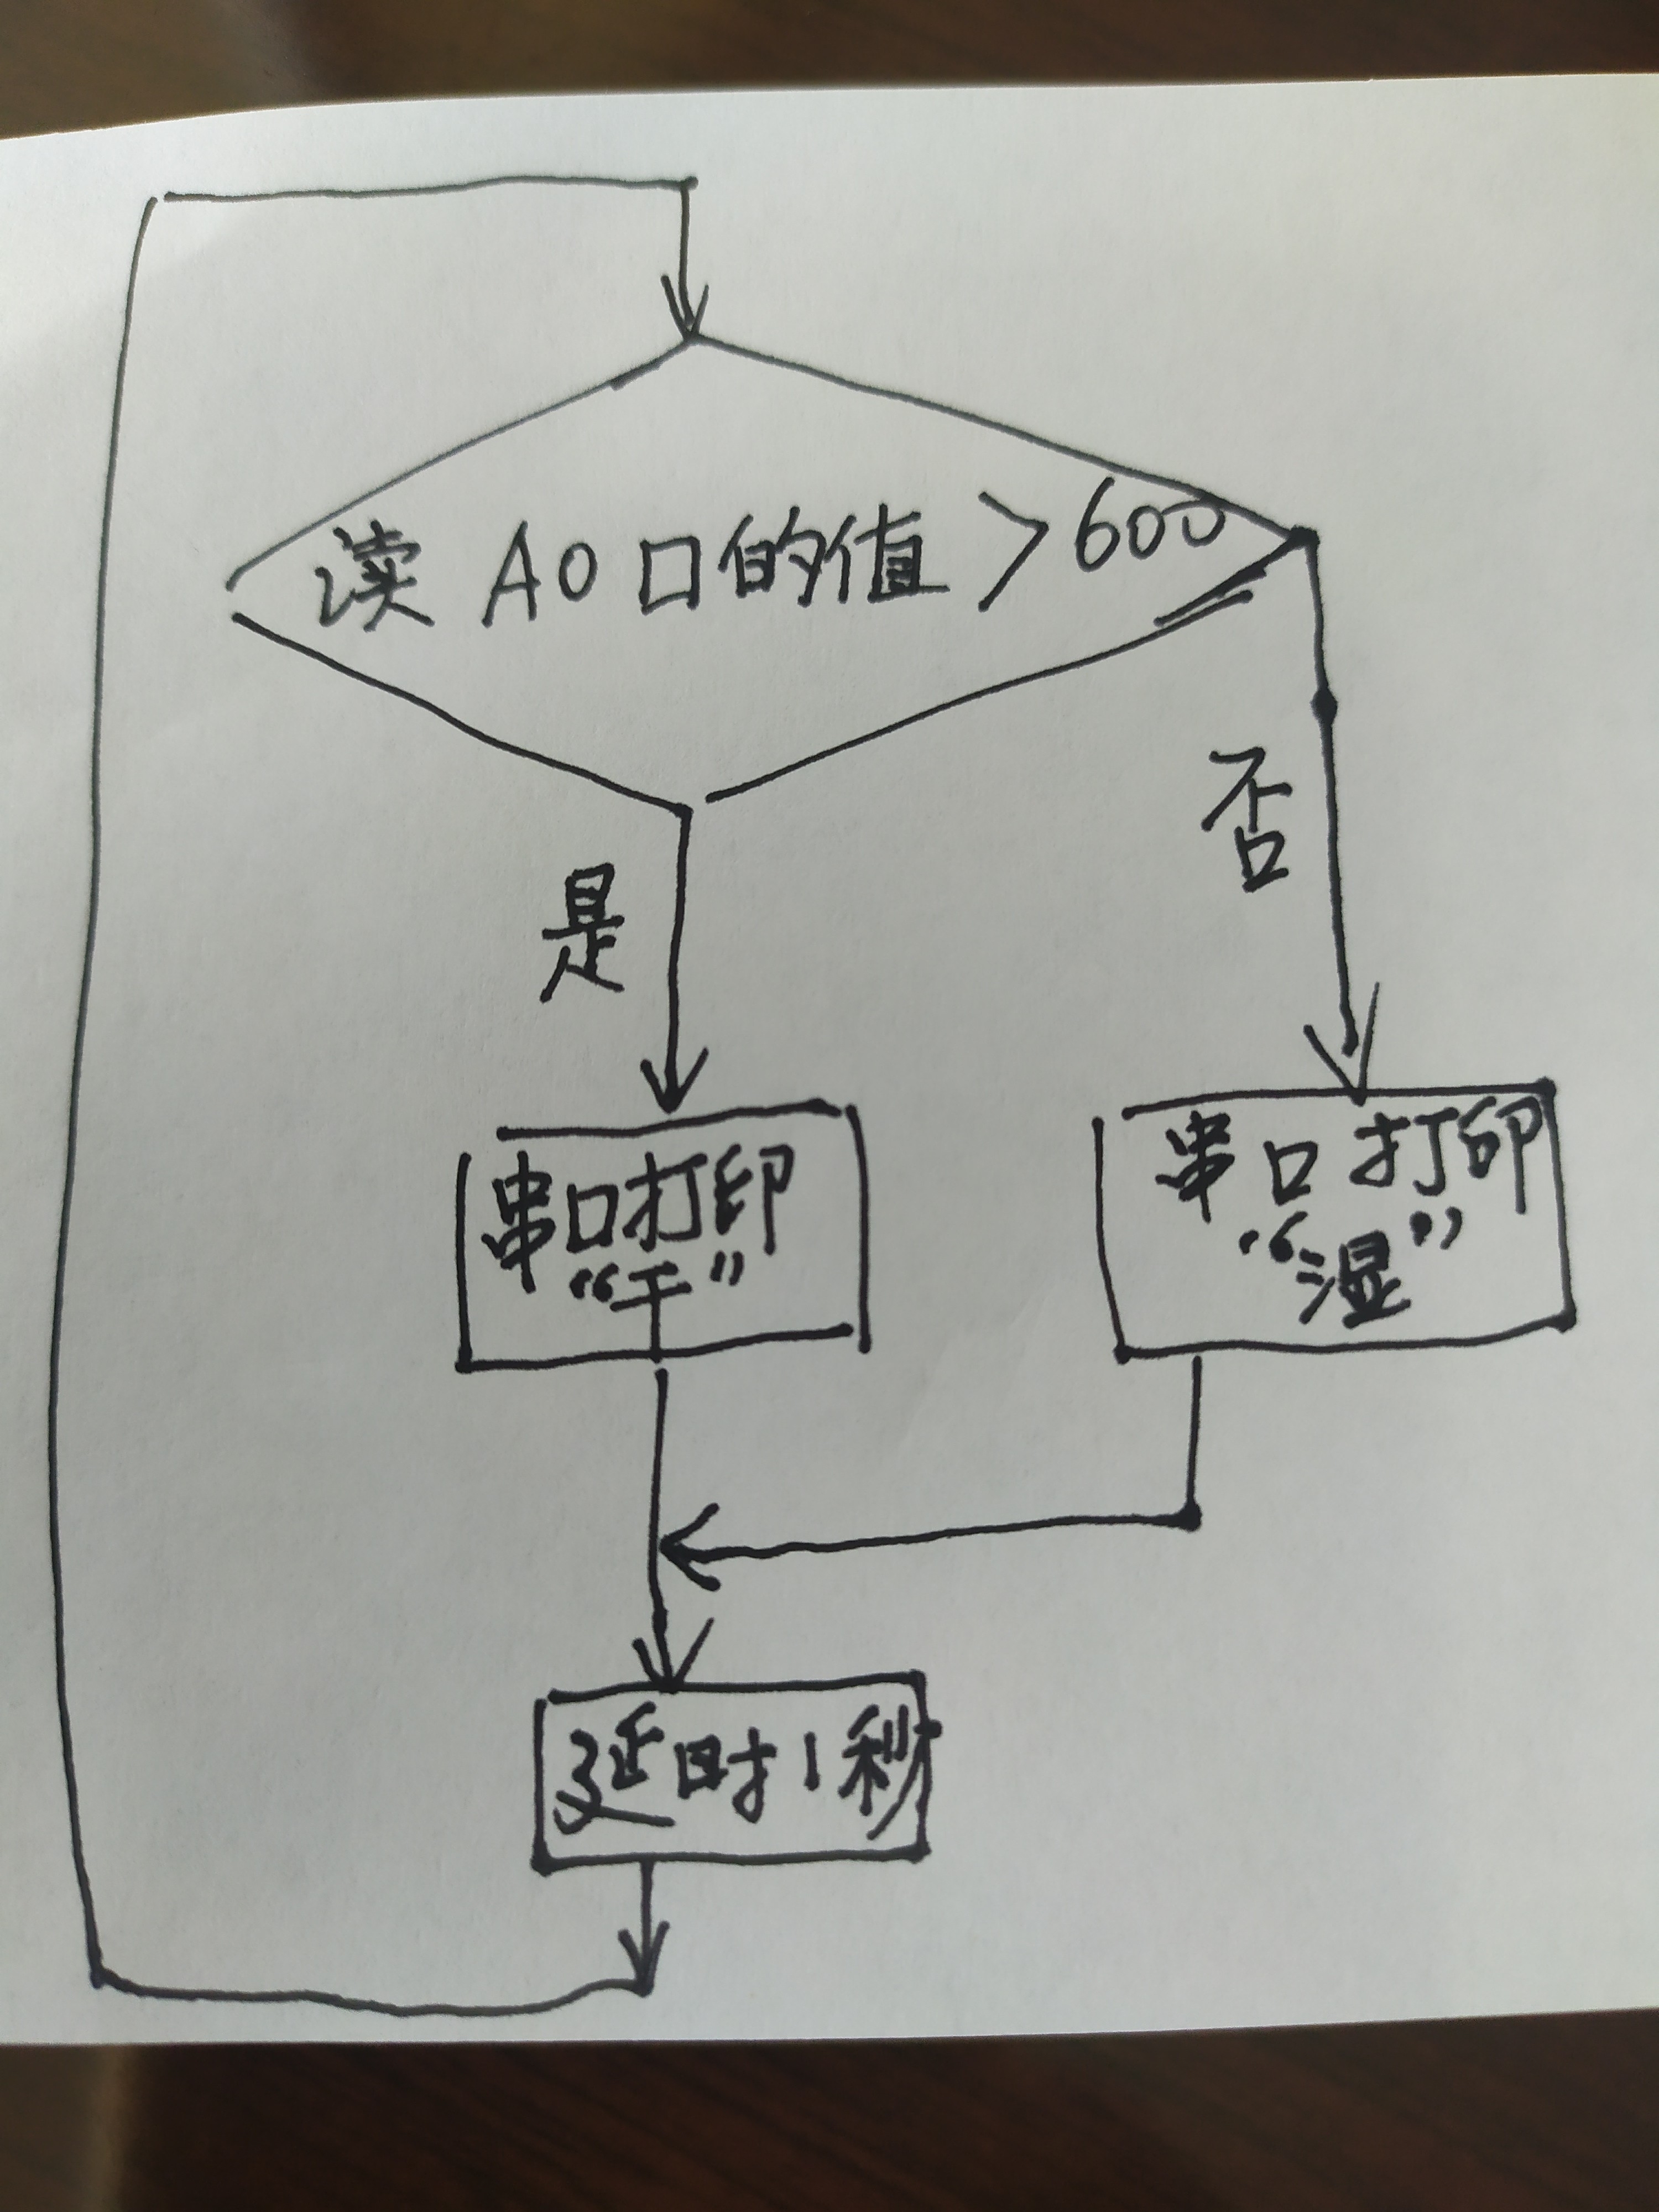 读 A0 口的值 > 600
是
否
串口打印
“干”
串口打印
“湿”
延时1秒